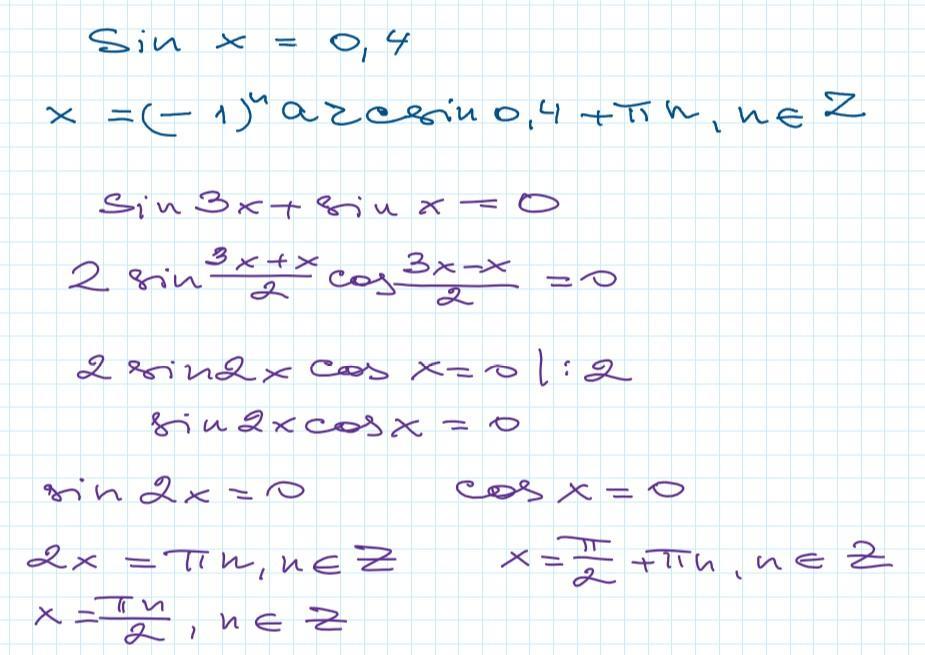 sin x = 0,4
x = (-1)ⁿ arcsin 0,4 + πn, n ∈ Z
sin 3x + sin x = 0
2 sin (3x+x)/2 cos (3x-x)/2 = 0
2 sin2x cos x = 0 | : 2
sin 2x cos x = 0
sin 2x = 0 cos x = 0
2x = πn, n ∈ Z x = π/2 + πn, n ∈ Z
x = πn/2, n ∈ Z